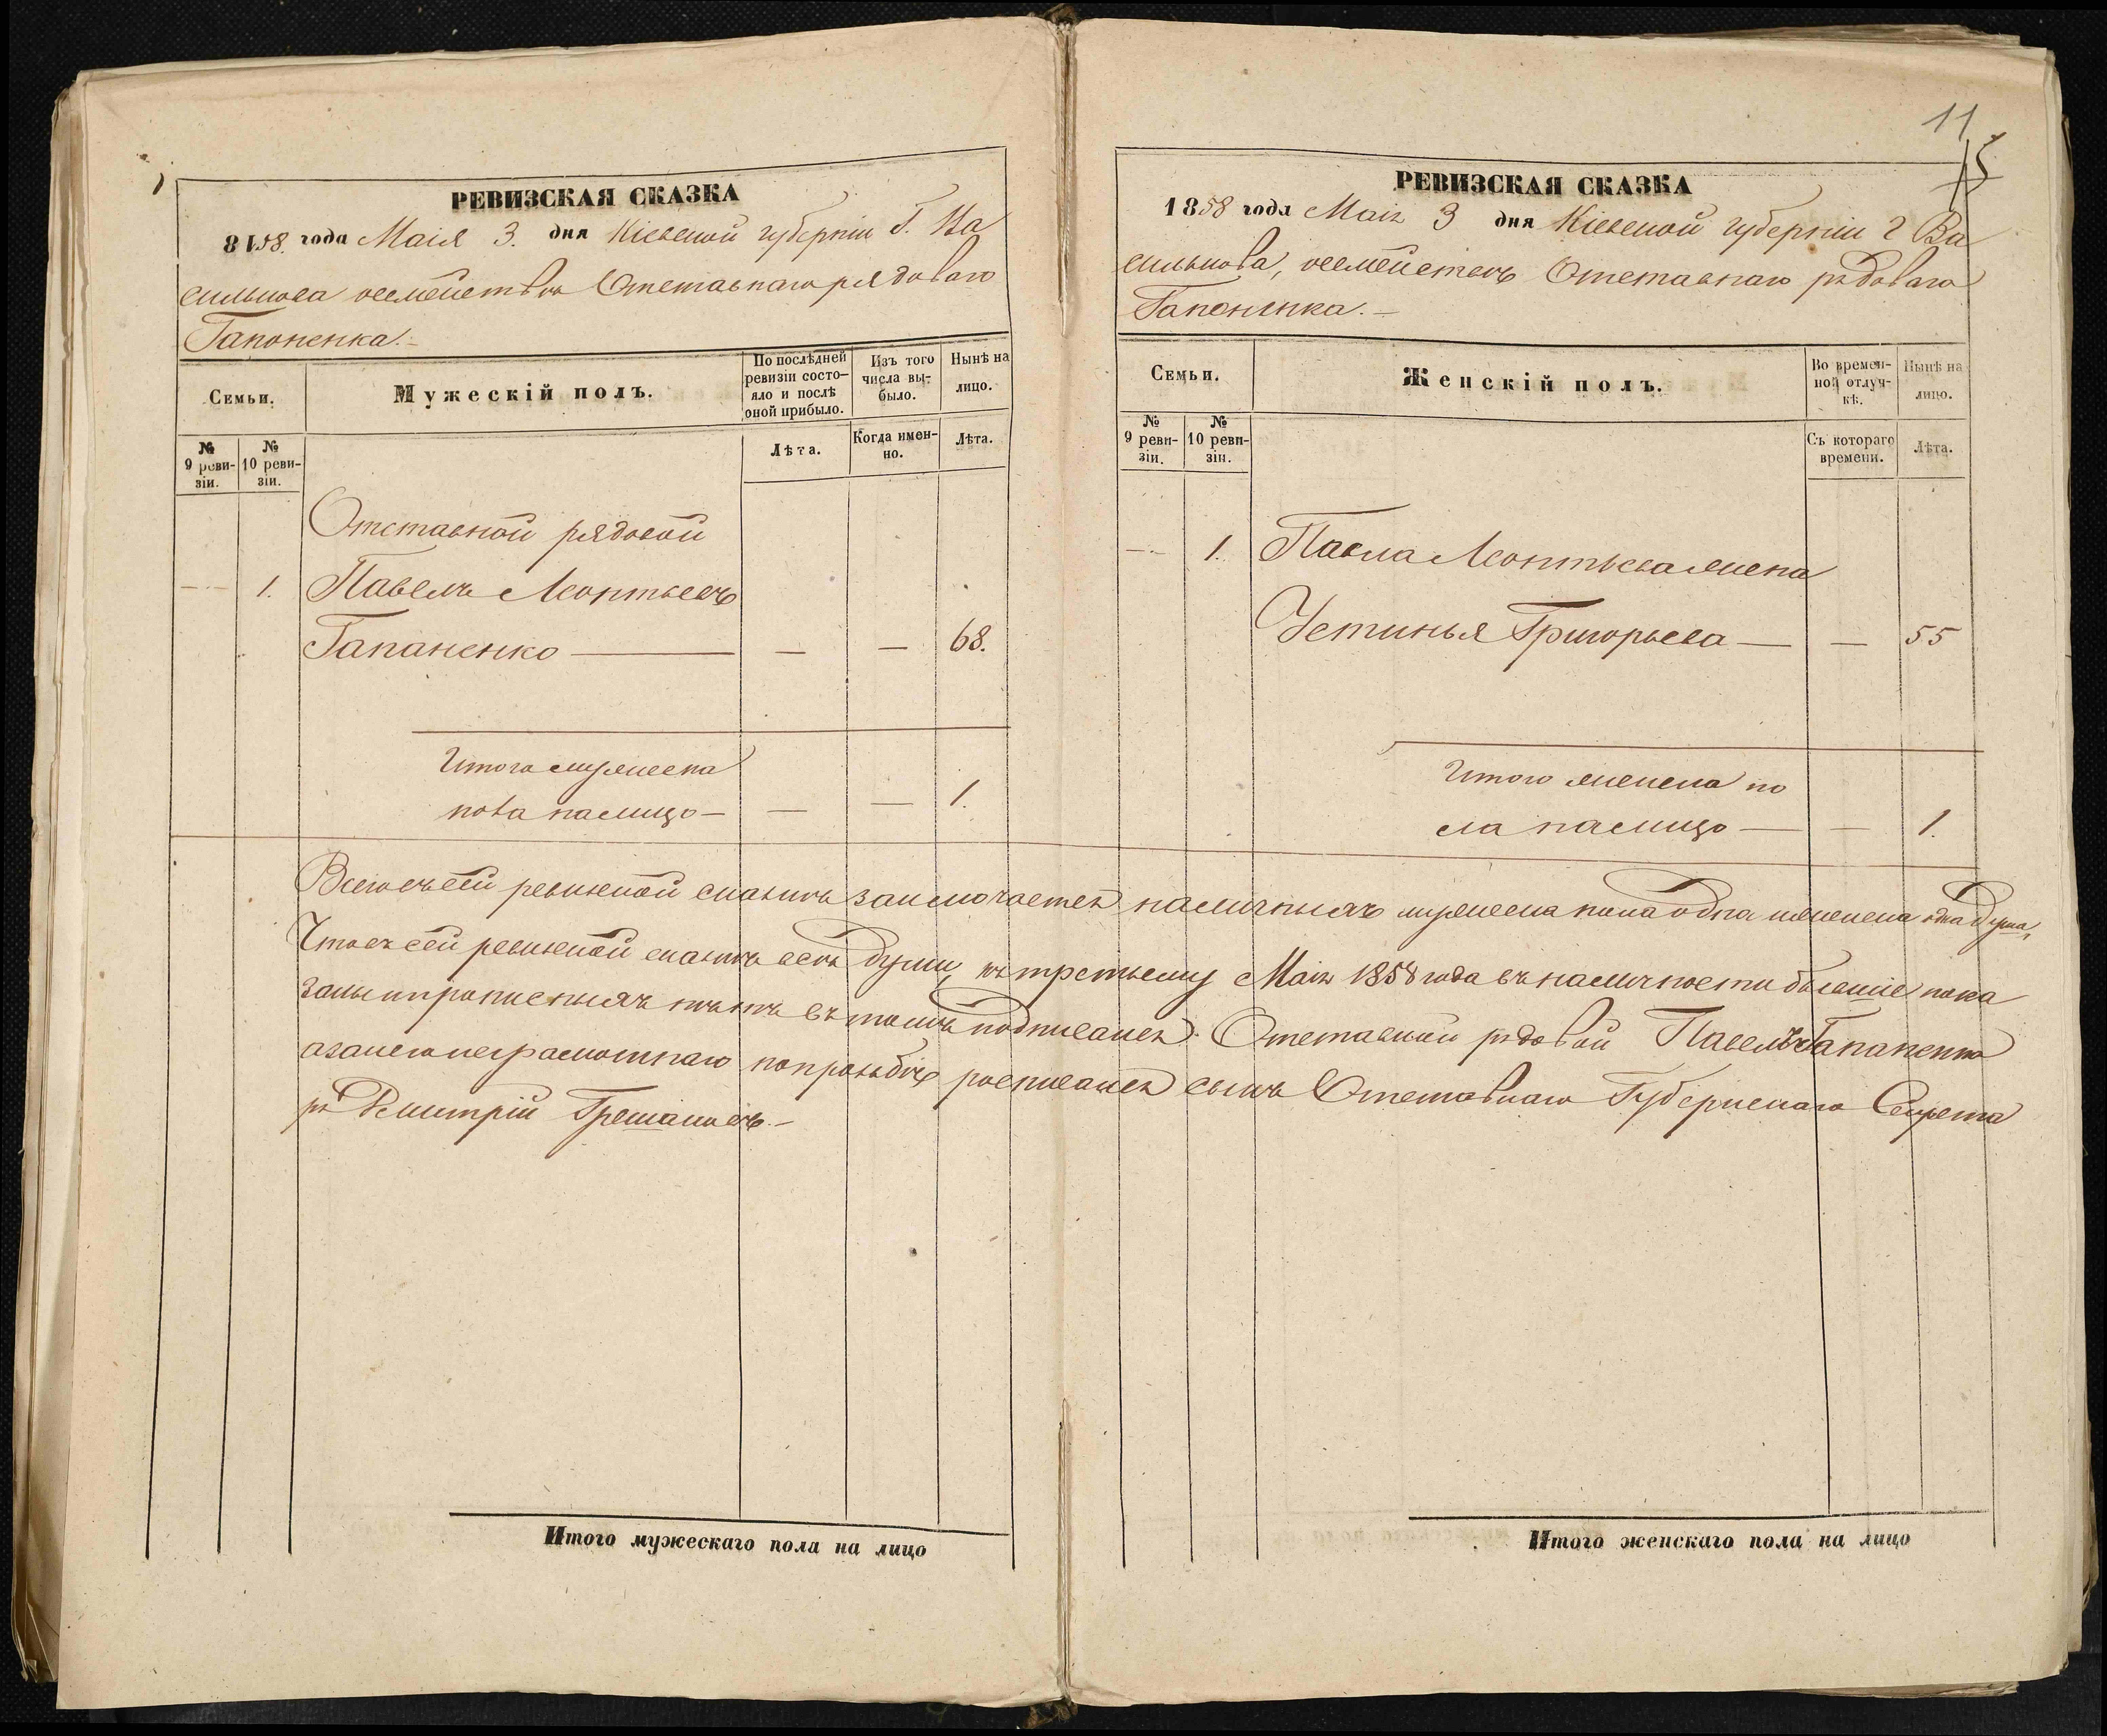 РЕВИЗСКАЯ СКАЗКА
8158. года Маія 3. дня Кіевской губерніи Г. Ва
силькова осемействѣ Отставнаго рядоваго
Гапоненка.-
Семьи.
Мужескій полъ.
По послѣдней ревизіи состо-яло и послѣ оной прибыло.
Изъ того числа вы-было.
Нынѣ на лицо.
№ 9 реви-зіи.
№ 10 реви-зіи.
Лѣта.
Когда имен-но.
Лѣта.
Отставной рядовой
— 1. Павелъ Леонтьевъ
Гапаненко — — — 68.
Итого мужеска
пола налицо — — — 1.
11
15
РЕВИЗСКАЯ СКАЗКА
1858 года Маія 3 дня Кіевской губерніи г Ва
силькова, осемействѣ Отставнаго рядоваго
Гапоненка.-
Семьи.
Женскій полъ.
Во времен-ной отлуч-кѣ.
Нынѣ на лицо.
№ 9 реви-зіи.
№ 10 реви-зіи.
Съ котораго времени.
Лѣта.
— 1. Павла Леонтьева жена
Устинья Григорьева — — 55
Итого женска по
ла налицо — — 1.
Всего въ сей ревизской сказкѣ заключается наличныхъ мужеска пола одна и женска одна душа,
Что въ сей ревизской сказкѣ всѣ души, къ третьему Маія 1858 года въ наличности бывшіе пока
заны и прописныхъ нѣтъ въ томъ подписался. Отставной рядовой Павелъ Гапаненко
а за него неграмотнаго по прозьбѣ росписался сынъ Отставнаго Губернскаго Секрета
ря Дмитрій
Итого мужескаго пола на лицо
Итого женскаго пола на лицо